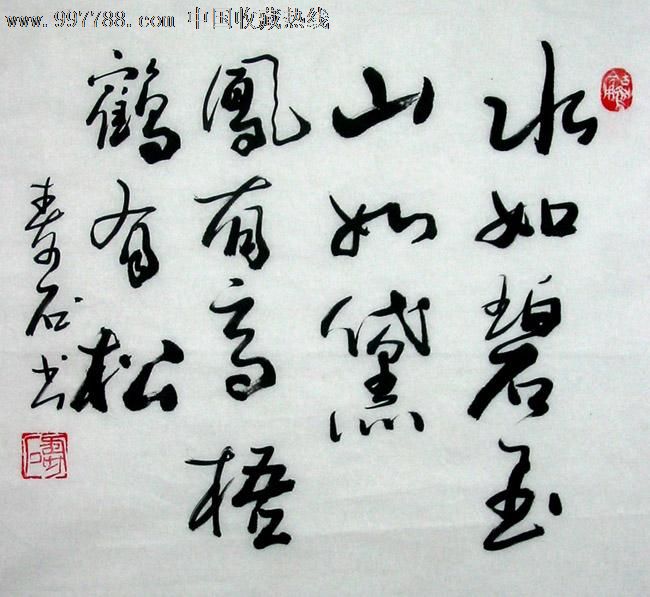 www.997788.com 中国收藏热线
水如碧玉
山如黛
鳳有高梧
鶴有松
壽石书